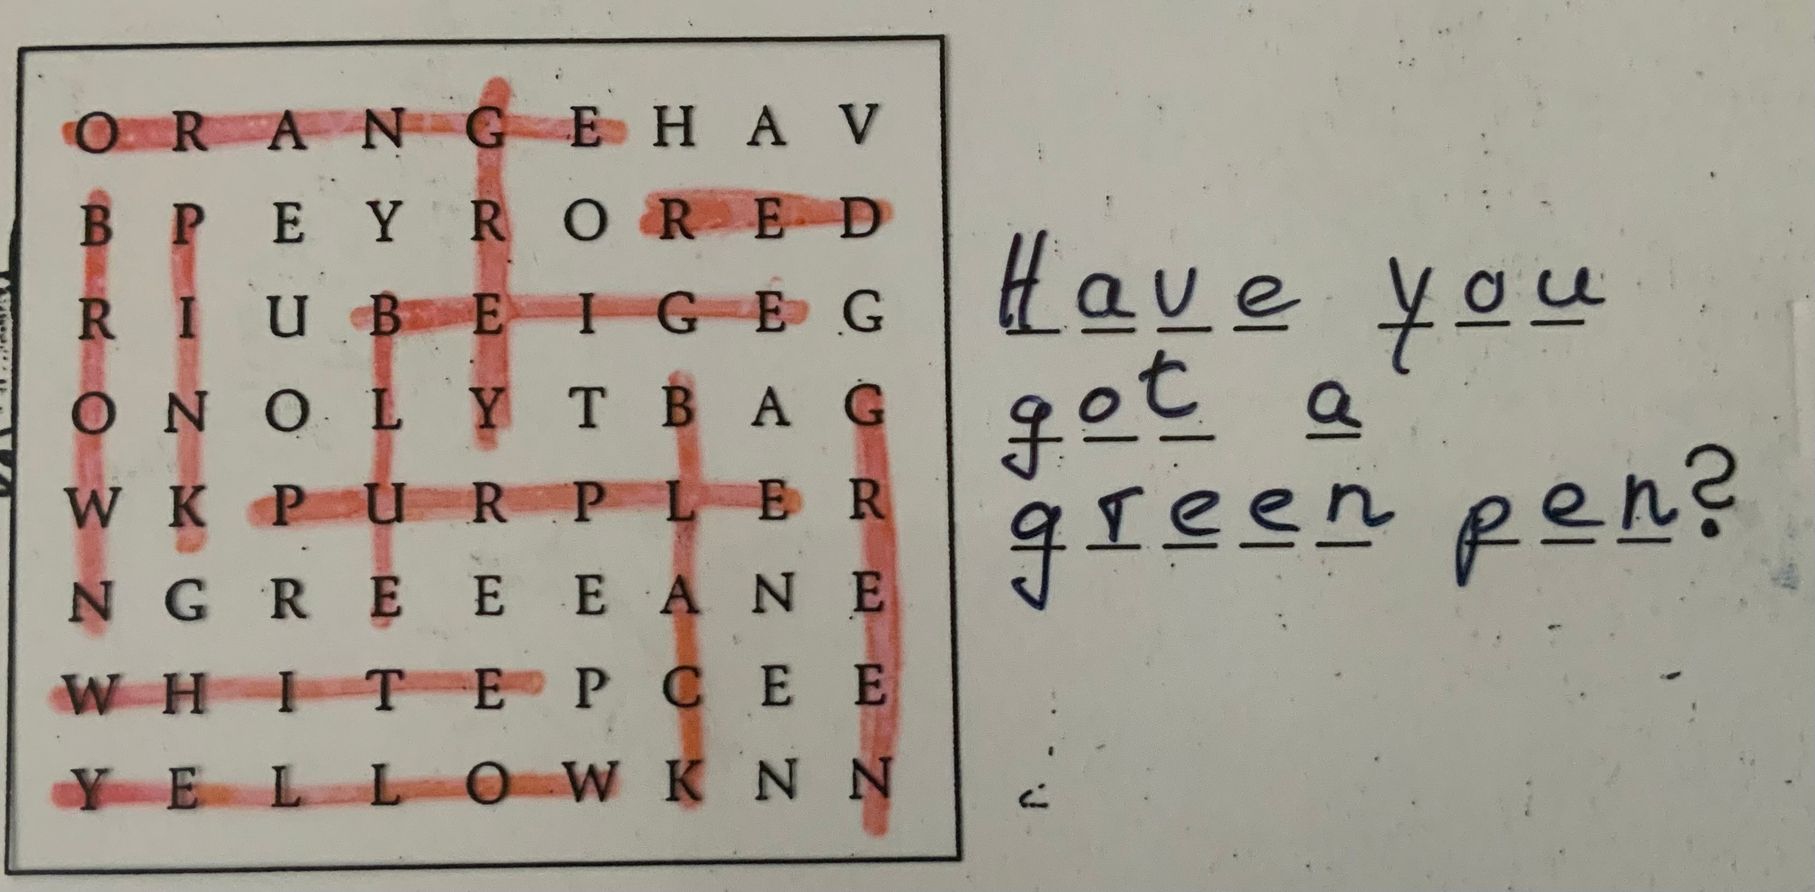 O R A N G E H A V
B P E Y R O R E D
R I U B E I G E G
O N O L Y T B A G
W K P U R P L E R
N G R E E E A N E
W H I T E P C E E
Y E L L O W K N N
Have you
got a
green pen?